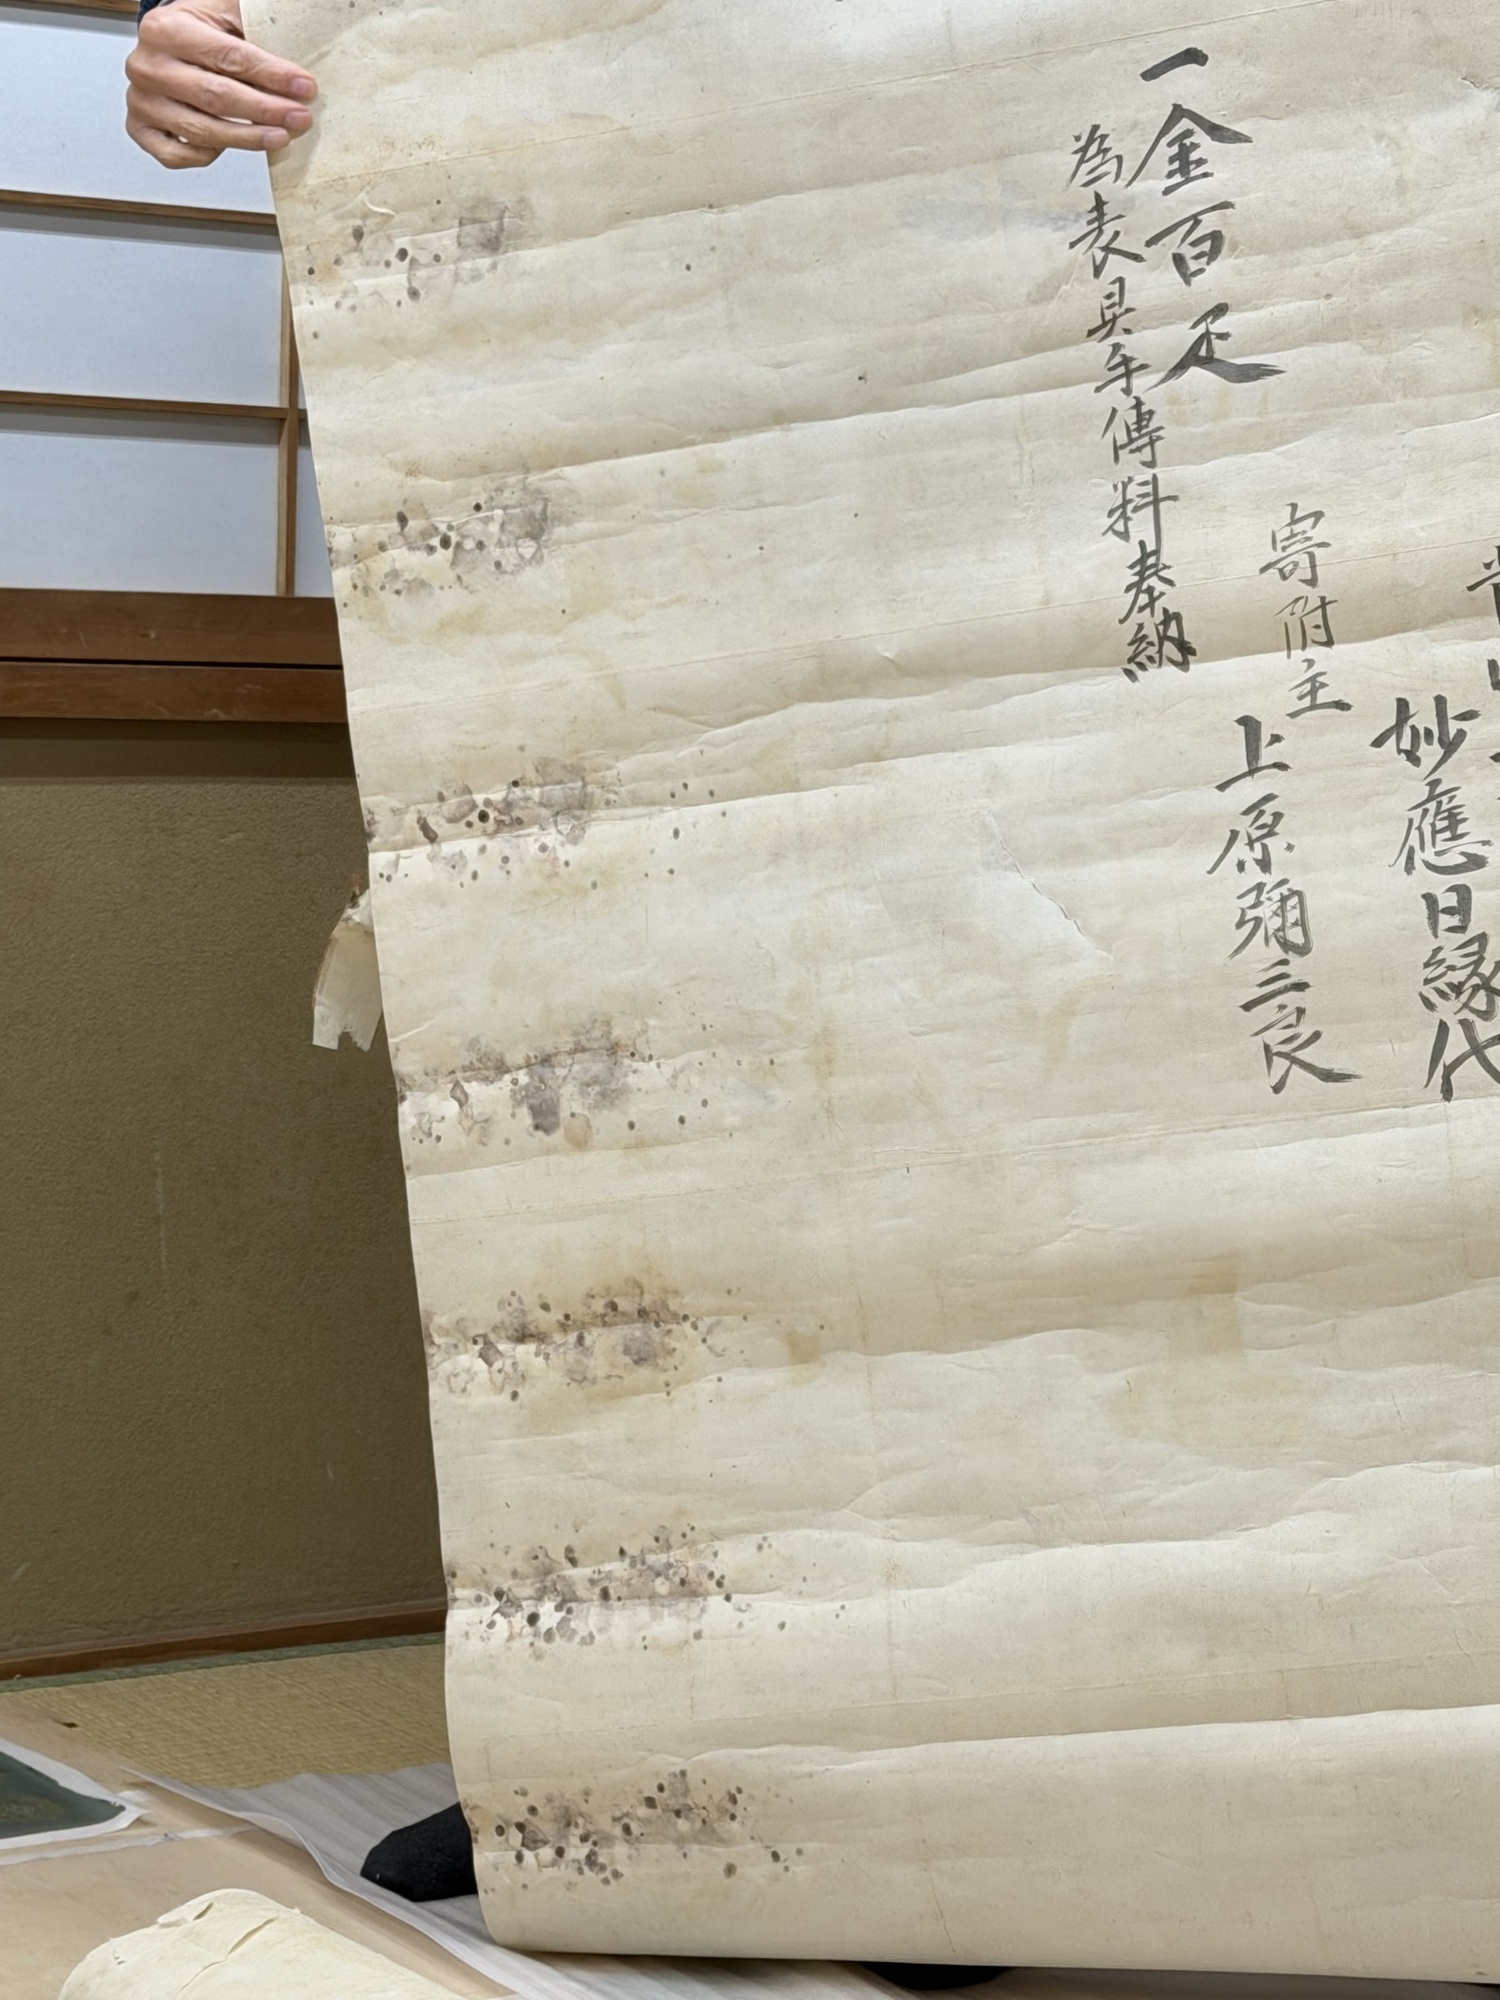 妙應日縁代
寄附主
上原彌三良
一金百疋
為表具手傳料奉納